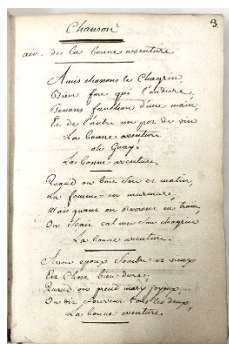 3.
Chanson
air. de la bonne aventure
Amis chassons le chagrin
Bien fou qui l'endure,
Tenons d'une main,
Et de l'autre un pot de vin
La bonne aventure
oh Guay!
La bonne aventure.
Quand on boit soir et matin,
La femme en murmure,
Mais quand on en train,
On sait calmer son chagrin
La bonne aventure.
epoux sombre et vieux
Est chose bien dure,
Quand on prend mary joyeux
On dit souvent tous les deux,
La bonne aventure.